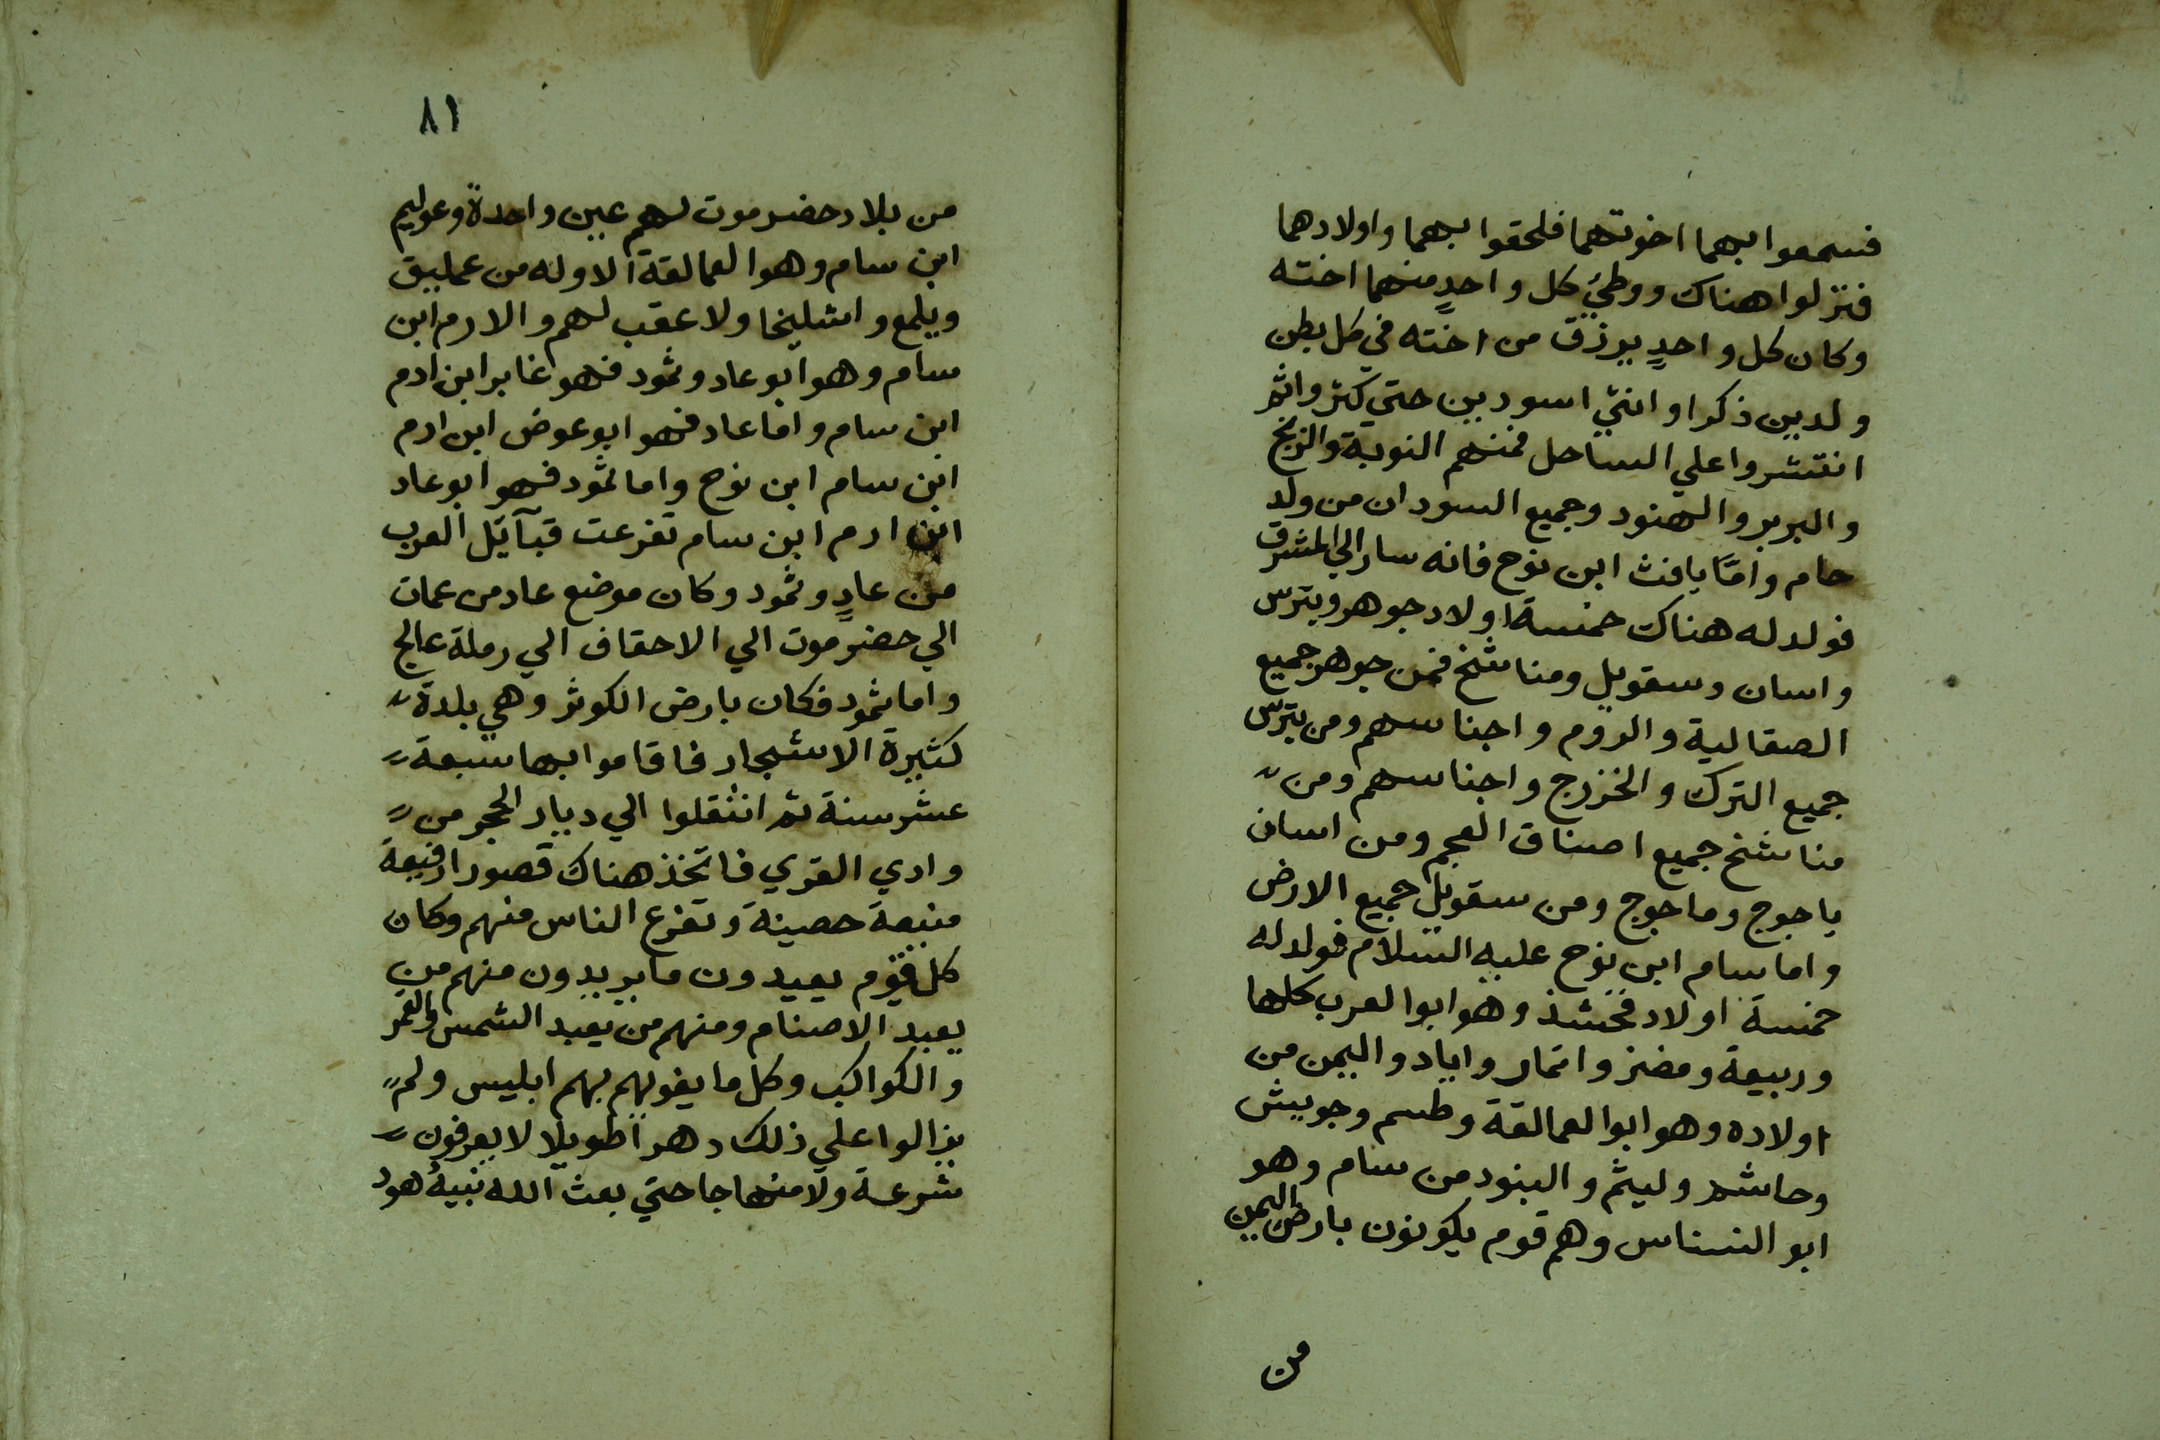 فسمعوا بهما اخوتهما فلحقوا بهما واولادهما
فنزلوا هناك ووطئ كل واحدٍ منهما اخته
وكان كل واحدٍ يرزق من اخته في كل بطن
ولدين ذكرا وانثي اسودين حتي كثروا ثم
انتشروا علي الساحل فمنهم النوبة والزنج
والبربر والهنود وجميع السودان من ولد
حام وامّا يافث ابن نوح فانه سار الي المشرق
فولد له هناك خمسة اولاد جوهر وبترس
واسان وسقويل ومناشخ فمن جوهر جميع
الصقالية والروم واجناسهم ومن بترس
جميع الترك والخزرج واجناسهم ومن
مناشخ جميع اصناف العجم ومن اسان
ياجوج وماجوج ومن سقويل جميع الارض
واما سام ابن نوح عليه السلام فولد له
خمسة اولاد فخشذ وهو ابوا العرب كلها
وربيعة ومضر وانمار واياد واليمن من
اولاده وهو ابوا العمالقة وطسم وجويش
وحاشم وليثم والبنود من سام وهو
ابو النسناس وهم قوم يكونون بارض اليمن
من
٨١
من بلاد حضرموت لهم عين واحدة وعوليم
ابن سام وهوا العمالقة الاوله من عمليق
ويلمع واشليخا ولا عقب لهم والارم ابن
سام وهو ابو عاد وثمود فهو غابر ابن ادم
ابن سام واما عاد فهو ابو عوض ابن ادم
ابن سام ابن نوح واما ثمود فهو ابو عاد
ابن ادم ابن سام تفرعت قبآئل العرب
من عادٍ وثمود وكان موضع عاد من عمان
الي حضرموت الي الاحقاف الي رملة عالج
واما ثمود فكان بارض الكوثر وهي بلدة
كثيرة الاشجار فاقاموا بها سبعة
عشر سنة ثم انتقلوا الي ديار الحجر من
وادي القري فاتخذ هناك قصورا رفيعة
منيعة حصينة وتفرع الناس منهم وكان
كل قوم يعبدون ما يريدون منهم من
يعبد الاصنام ومنهم من يعبد الشمس والقمر
والكواكب وكل ما يغويهم بهم ابليس ولم
يزالوا علي ذلك دهرا طويلا لا يعرفون
شرعة ولا منهاجا حتي بعث الله نبيهُ هود